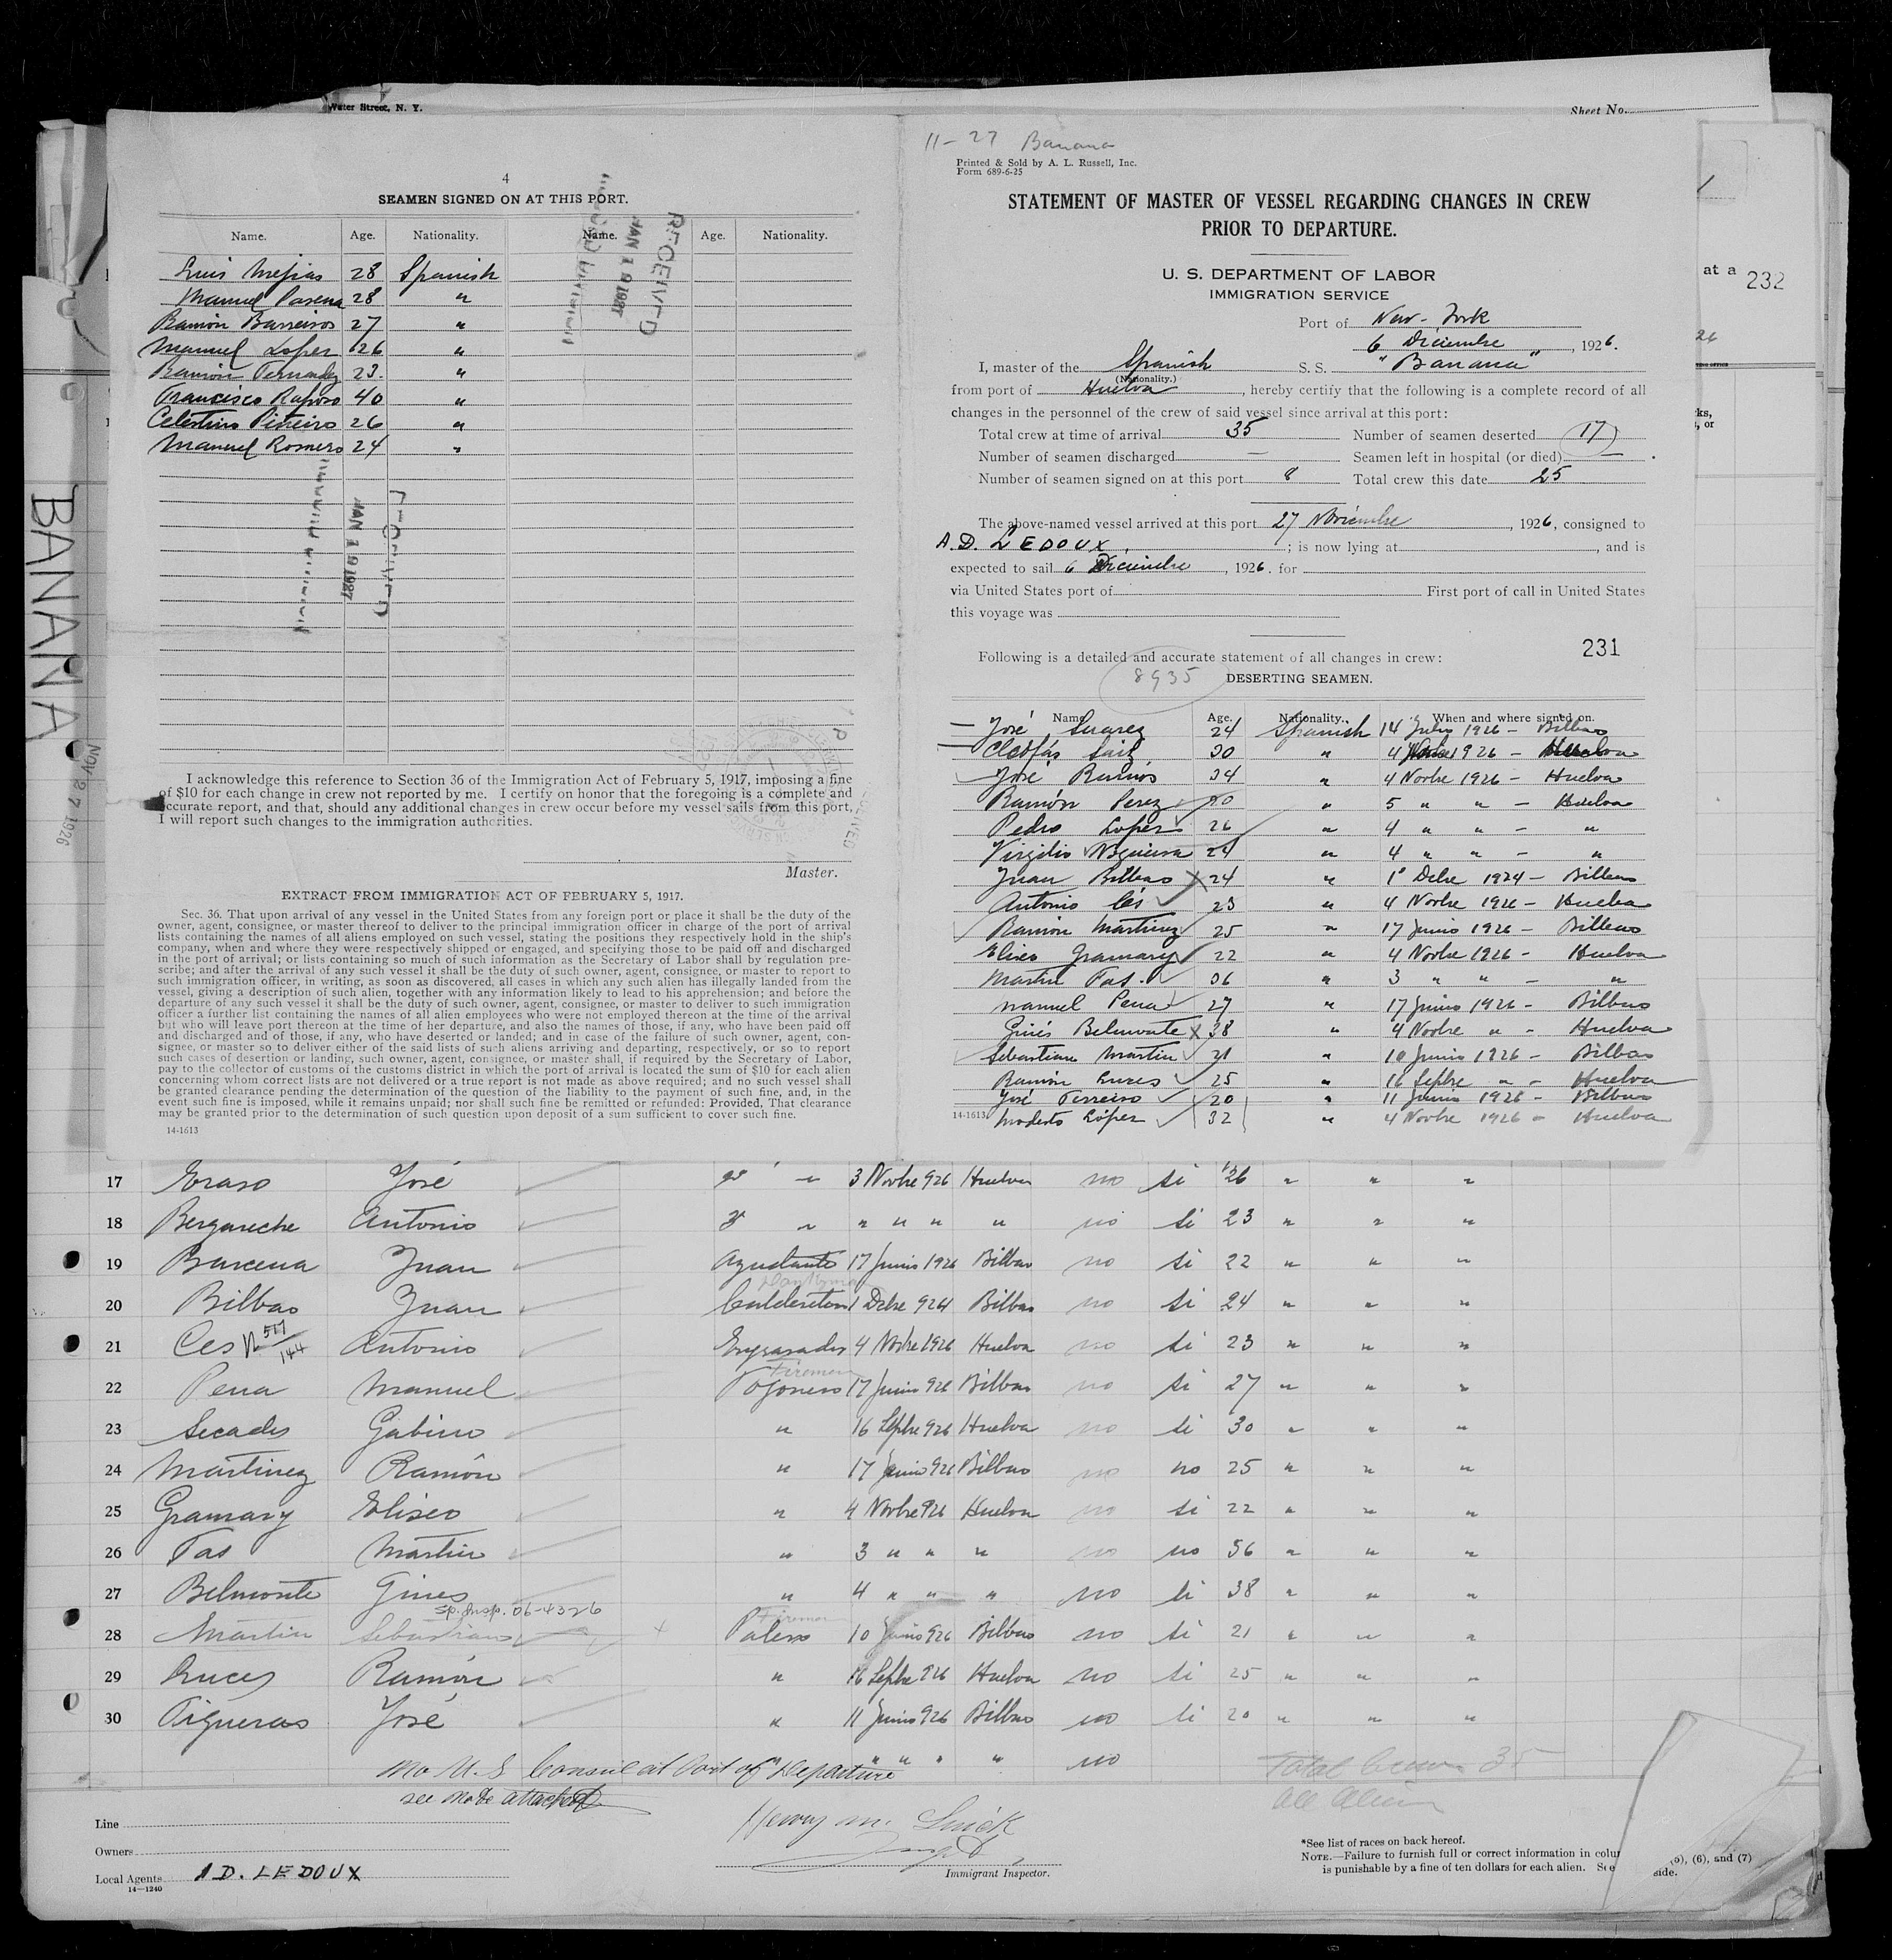 Water Street, N. Y.
Sheet No.
4
SEAMEN SIGNED ON AT THIS PORT.
Name. Age. Nationality. Name. Age. Nationality.
Luis Mejias 28 Spanish
Manuel 28 "
Ramón Barreiros 27 "
Manuel Lopez 26 "
Ramón Fernandez 23. "
Francisco Raposo 40 "
Celestino Piñeiro 26 "
Manuel Romero 24 "
RECEIVED
JAN 19 1927
JAN 19 1927
I acknowledge this reference to Section 36 of the Immigration Act of February 5, 1917, imposing a fine
of $10 for each change in crew not reported by me. I certify on honor that the foregoing is a complete and
accurate report, and that, should any additional changes in crew occur before my vessel sails from this port,
I will report such changes to the immigration authorities.
Master.
EXTRACT FROM IMMIGRATION ACT OF FEBRUARY 5, 1917.
Sec. 36. That upon arrival of any vessel in the United States from any foreign port or place it shall be the duty of the
owner, agent, consignee, or master thereof to deliver to the principal immigration officer in charge of the port of arrival
lists containing the names of all aliens employed on such vessel, stating the positions they respectively hold in the ship's
company, when and where they were respectively shipped or engaged, and specifying those to be paid off and discharged
in the port of arrival; or lists containing so much of such information as the Secretary of Labor shall by regulation pre-
scribe; and after the arrival of any such vessel it shall be the duty of such owner, agent, consignee, or master to report to
such immigration officer, in writing, as soon as discovered, all cases in which any such alien has illegally landed from the
vessel, giving a description of such alien, together with any information likely to lead to his apprehension; and before the
departure of any such vessel it shall be the duty of such owner, agent, consignee, or master to deliver to such immigration
officer a further list containing the names of all alien employees who were not employed thereon at the time of the arrival
but who will leave port thereon at the time of her departure, and also the names of those, if any, who have been paid off
and discharged and of those, if any, who have deserted or landed; and in case of the failure of such owner, agent, con-
signee, or master so to deliver either of the said lists of such aliens arriving and departing, respectively, or so to report
such cases of desertion or landing, such owner, agent, consignee, or master shall, if required by the Secretary of Labor,
pay to the collector of customs of the customs district in which the port of arrival is located the sum of $10 for each alien
concerning whom correct lists are not delivered or a true report is not made as above required; and no such vessel shall
be granted clearance pending the determination of the question of the liability to the payment of such fine, and, in the
event such fine is imposed, while it remains unpaid; nor shall such fine be remitted or refunded: Provided, That clearance
may be granted prior to the determination of such question upon deposit of a sum sufficient to cover such fine.
14-1613
BANANA
NOV 27 1926
11-27 Banana
Printed & Sold by A. L. Russell, Inc.
Form 689-6-25
STATEMENT OF MASTER OF VESSEL REGARDING CHANGES IN CREW
PRIOR TO DEPARTURE.
U. S. DEPARTMENT OF LABOR
IMMIGRATION SERVICE
Port of New-York
6 Diciembre, 1926.
I, master of the Spanish S. S. "Banana"
(Nationality.)
from port of Huelva, hereby certify that the following is a complete record of all
changes in the personnel of the crew of said vessel since arrival at this port:
Total crew at time of arrival 35 Number of seamen deserted 17
Number of seamen discharged — Seamen left in hospital (or died) — .
Number of seamen signed on at this port 8 Total crew this date 25
The above-named vessel arrived at this port 27 Noviembre, 1926, consigned to
A. D. LEDOUX, ; is now lying at , and is
expected to sail 6 Diciembre, 1926. for
via United States port of First port of call in United States
this voyage was
231
Following is a detailed and accurate statement of all changes in crew:
8935 DESERTING SEAMEN.
Name Age. Nationality. When and where signed on.
José Suarez 24 Spanish 14 Julio 1926 - Bilbao
Cleofás Saiz 30 " 4 Novbre 1926 - Huelva
José Ramos 34 " 4 Novbre 1926 - Huelva
Ramón Perez 20 " 5 " " - Huelva
Pedro Lopez 26 " 4 " " - "
Virgilio Nogueira 24 " 4 " " - "
Juan Bilbao 24 " 1° Dcbre 1924 - Bilbao
Antonio Ces 23 " 4 Novbre 1926 - Huelva
Ramón Martinez 25 " 17 Junio 1926 - Bilbao
Eliseo Gramary 22 " 4 Novbre 1926 - Huelva
Martin Fas. 36 " 3 " " - "
Manuel Pena 27 " 17 Junio 1926 - Bilbao
Ginés Belmonte 38 " 4 Novbre " - Huelva
Sebastian Martin 21 " 10 Junio 1926 - Bilbao
Ramón Luces 25 " 16 Sepbre " - Huelva
José 20 " 11 Junio 1926 - Bilbao
14-1613 Modesto López 32 " 4 Novbre 1926 - Huelva
at a 232
17 Eraso José " 3 Novbre 926 Huelva no si 26 " " "
18 Bergareche Antonio " " " " " no si 23 " " "
19 Barcena Juan Ayudante 17 Junio 1926 Bilbao no si 22 " " "
20 Bilbao Juan 1 Dcbre 924 Bilbao no si 24 " " "
21 Ces 517/144 Antonio Engrasador 4 Novbre 1926 Huelva no si 23 " " "
Firemen
22 Pena Manuel Fogonero 17 Junio 926 Bilbao no si 27 " " "
23 Secades Gabino " 16 Sepbre 926 Huelva no si 30 " " "
24 Martinez Ramón " 17 Junio 926 Bilbao no no 25 " " "
25 Gramary Eliseo " 4 Novbre 926 Huelva no si 22 " " "
26 Fas Martin " 3 " " " no no 36 " " "
27 Belmonte Gines " 4 " " " no si 38 " " "
Sp. Insp. 06-4326 Firemen
28 Martin Sebastian Palero 10 Junio 926 Bilbao no si 21 " " "
29 Luces Ramón " 16 Sepbre 926 Huelva no si 25 " " "
30 Figueras José " 11 Junio 926 Bilbao no si 20 " " "
" " " " no
No U. S Consul at Port of Departure
see note attached
Total Crew 35
All Aliens
Line
Owners
Local Agents A D. LEDOUX
14-1240
Immigrant Inspector.
*See list of races on back hereof.
NOTE.—Failure to furnish full or correct information in colu (5), (6), and (7)
is punishable by a fine of ten dollars for each alien. See side.